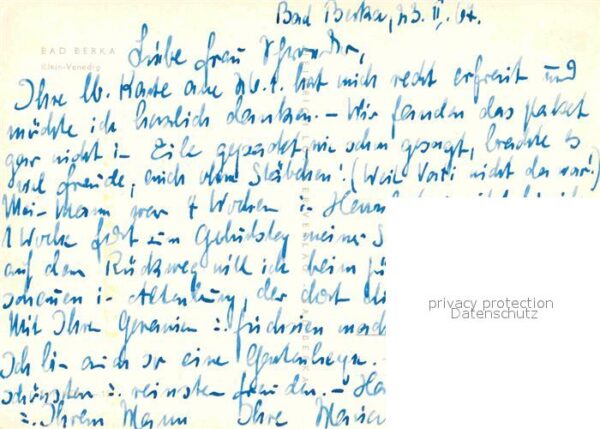 Bad Berka, 23. II. 64.
BAD BERKA
Klein-Venedig
Liebe Frau Schroeder,
Ihre lb. Karte am hat mich recht erfreut und
möchte ich herzlich danken. – Wir fanden das Paket
gar nicht in Eile gepackt, wie schon gesagt, brachte es
viel Freude, auch ohne Stäbchen! (Weil Vati nicht da war!)
Mein Mann war 4 Wochen in
1 Woche fort zum Geburtstag meiner S
auf dem Rückweg will ich beim
schauen in Altenburg, der dort
Mit Ihre Geranien u. Fuchsien
Ich bin auch so eine Gartenhexe.
schönsten u. reinsten Freuden. –
u. Ihrem Mann Ihre
privacy protection
Datenschutz